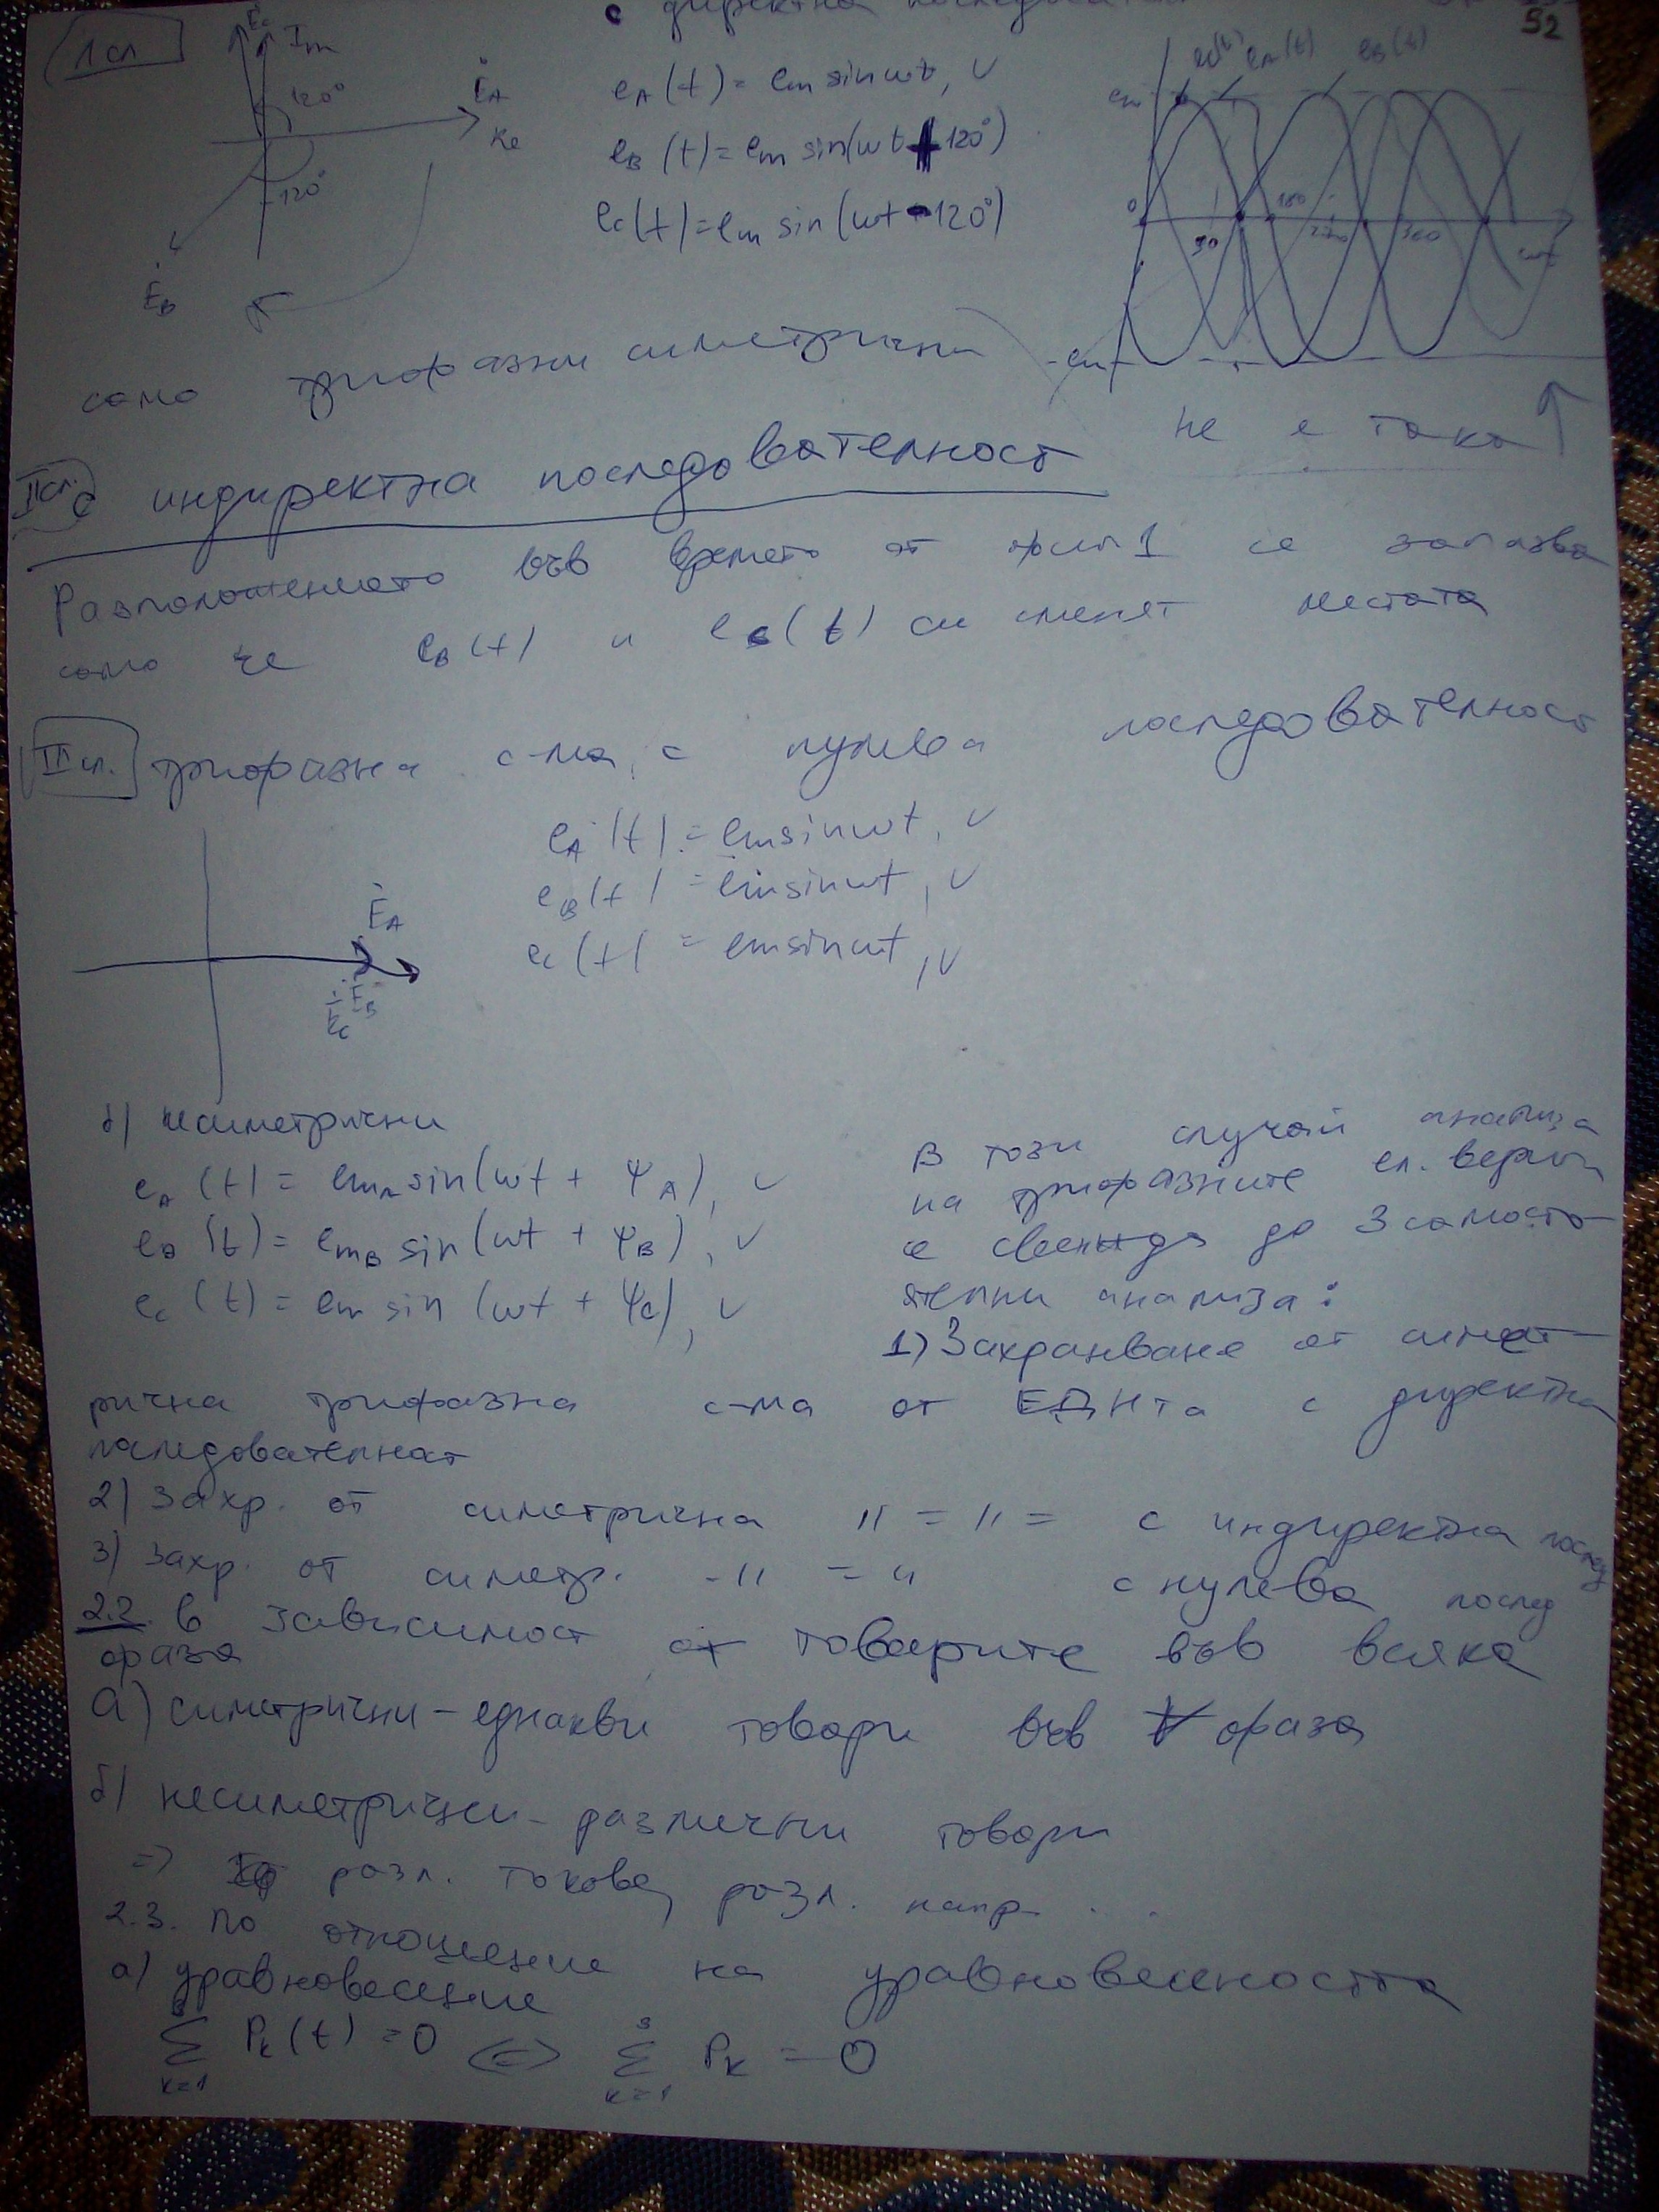 с директна последователност
52
I сл
Ėc Im
120°
ĖA
Re
120°
ĖB
eA(t) = em sinωt, V
eB(t) = em sin(ωt + 120°)
eC(t) = em sin(ωt - 120°)
eC(t) eA(t) eB(t)
em
0 90 180 270 360 ωt
-em
само трифазни симетрични
не е така
II сл. с индиректна последователност
Разположението във времето от фиг 1 се запазва
само че eB(t) и eC(t) си сменят местата
III сл. трифазна с-ма с нулева последователност
eA(t) = em sinωt, V
eB(t) = em sinωt, V
eC(t) = em sinωt, V
ĖA
ĖB
ĖC
б) несиметрични
eA(t) = emA sin(ωt + ψA), V
eB(t) = emB sin(ωt + ψB), V
eC(t) = em sin(ωt + ψC), V
В този случай анализа
на трифазните ел. вериги
се свежда до 3 самосто-
ятелни анализа:
1) Захранване от симет-
рична трифазна с-ма от ЕДНта с директна
последователност
2) Захр. от симетрична " = " = с индиректна послед
3) Захр. от симетр. - " = " с нулева послед
2.2. В зависимост от товарите във всяка
фаза
а) симетрични - еднакви товари във ∀ фаза
б) несиметрични - различни товари
=> разл. токове, разл. напр. ..
2.3. По отношение на уравновесеността
а) уравновесени
∑ k=1 Pk(t) = 0 <=> 3 ∑ k=1 Pk = 0